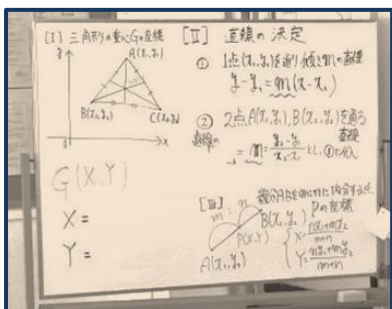 [I] 三角形の重心Gの座標
y
A(x₁,y₁)
B(x₂,y₂)
C(x₃,y₃)
x
G(X,Y)
X=
Y=
[II] 直線の決定
① 1点(x₁,y₁)を通り傾きmの直線
y-y₁=m(x-x₁)
② 2点A(x₁,y₁),B(x₂,y₂)を通る
直線
直線の
m=\frac{y₂-y₁}{x₂-x₁}とし,①に代入
[III]
線分ABをm:nに内分する点
Pの座標
m:n
B(x₂,y₂)
P(X,Y)
A(x₁,y₁)
X=\frac{nx₁+mx₂}{m+n}
Y=\frac{ny₁+my₂}{m+n}